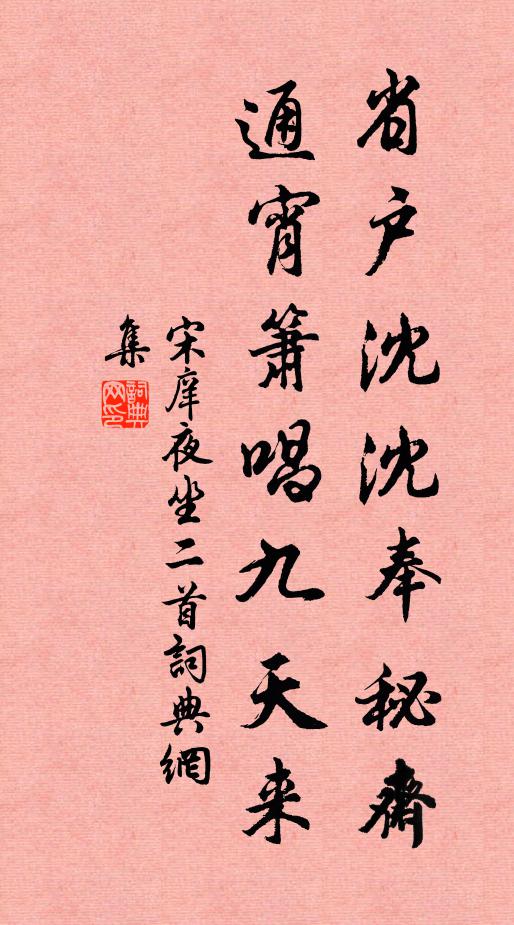 省户沈沈奉秘齋
通宵簫唱九天来
宋庠夜坐二首詞典網
集
詞典網印